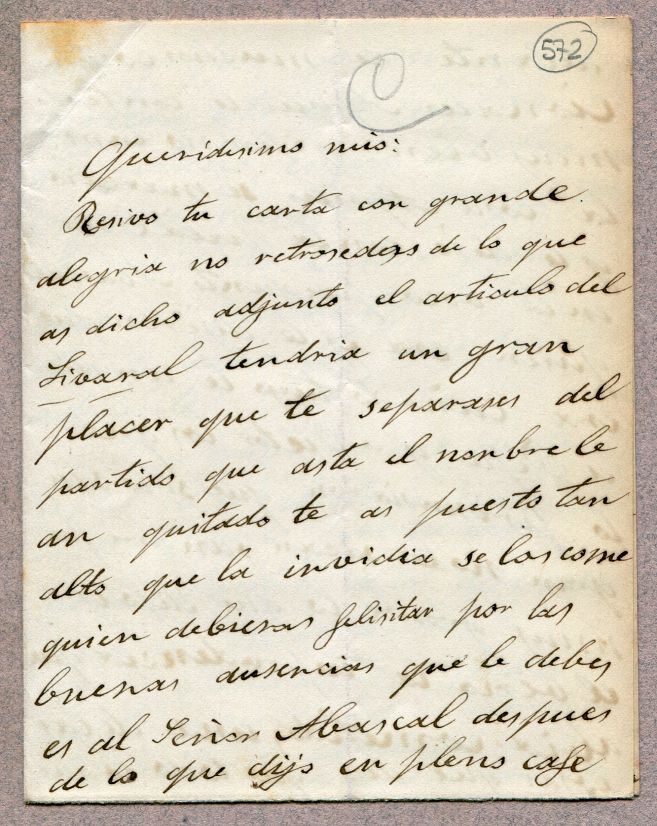 572
C
Queridisimo mio:
Resivo tu carta con grande
alegria no retrosedas de lo que
as dicho adjunto el articulo del
Livaral tendria un gran
placer que te separases del
partido que asta el nonbre le
an quitado te as puesto tan
alto que la invidia se los come
quien debieras felisitar por las
buenas ausencias que le debes
es al Señor Abascal despues
de lo que dijo en pleno cafe